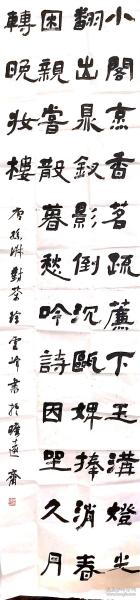 小閣烹香茗疏簾下玉溝燈光
翻出鼎釵影倒沉甌婢捧消春
困親嘗散暮愁吟詩因坐久月
轉晚妝樓
唐孫淑對茶 徐雲峰書於遠齋